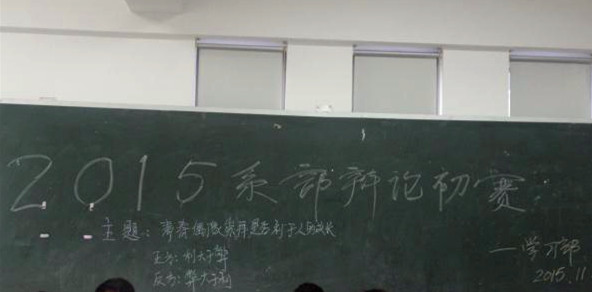 2015系部辩论初赛
主题：青春偶像崇拜是否利于人的成长
正方：利大于弊
反方：弊大于利
—学习部
2015.11